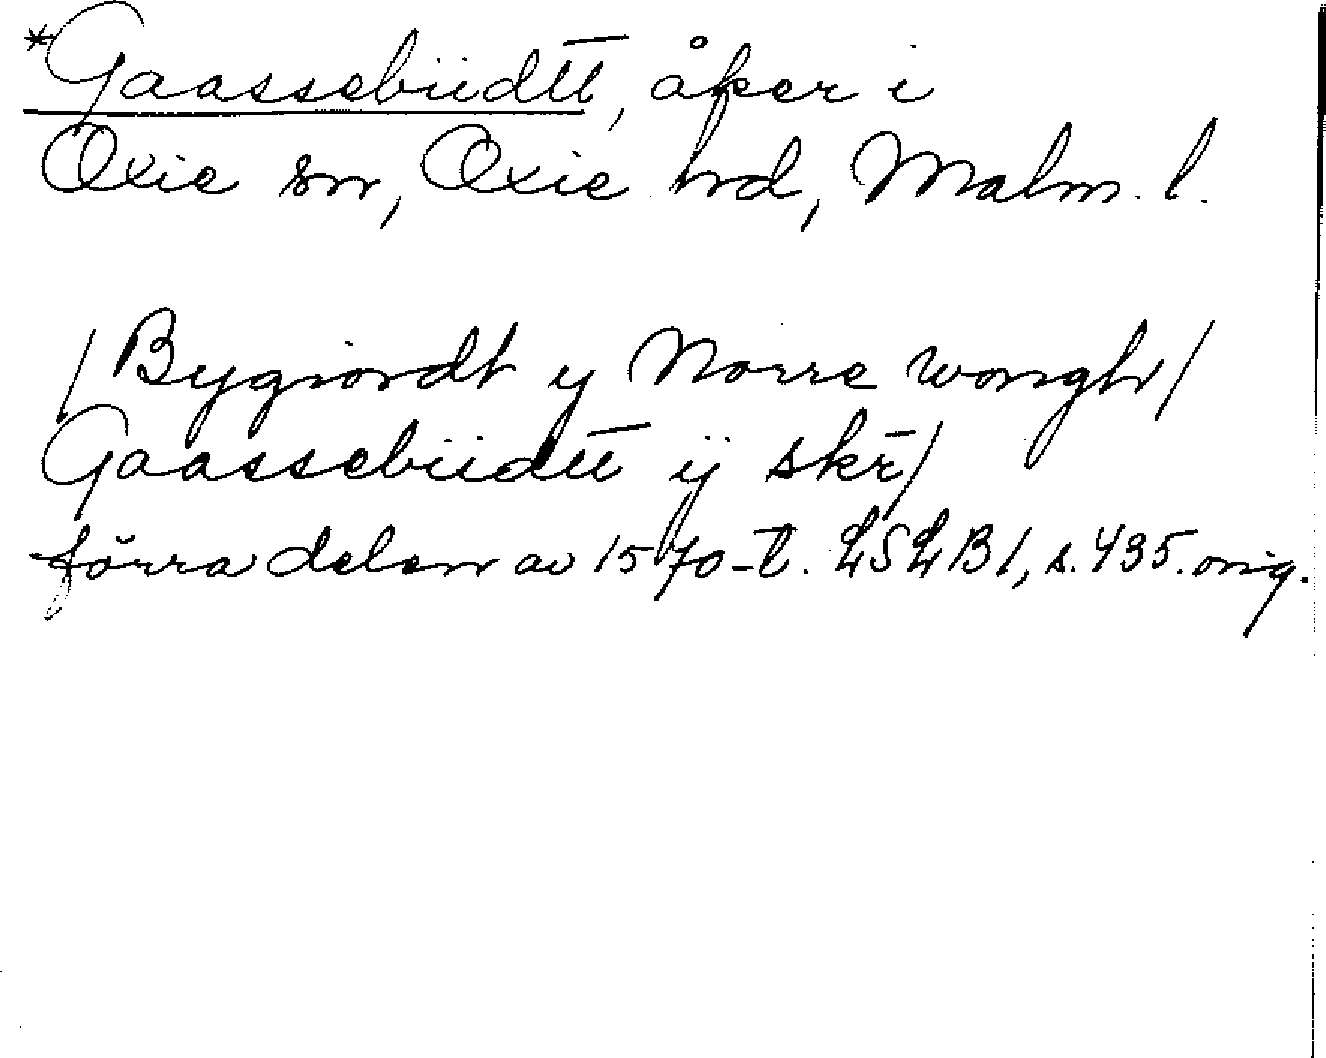 *Gaassebiidtt, åker i
Oxie sn, Oxie hd, Malm. l.
/Bygiordt y Norre wongh/
Gaassebiidtt ij skr̄/
förra delen av 1570-t. LSLB1, s. 435. orig.